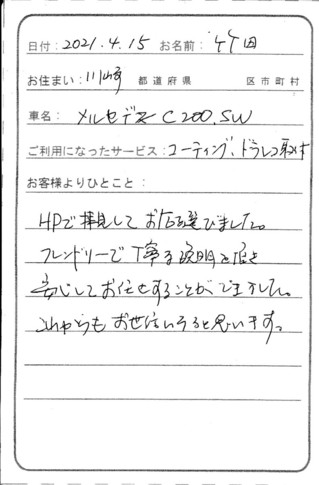 日付：2021.4.15 お名前：竹田
お住まい：川崎 都道府県 区市町村
車名： メルセデス C200.SW
ご利用になったサービス：コーティング、ドラレコ取付
お客様よりひとこと：
HPで拝見してお店を選びました。
フレンドリーで丁寧な説明を頂き
安心してお任せすることができました。
これからもお世話になろうと思います。